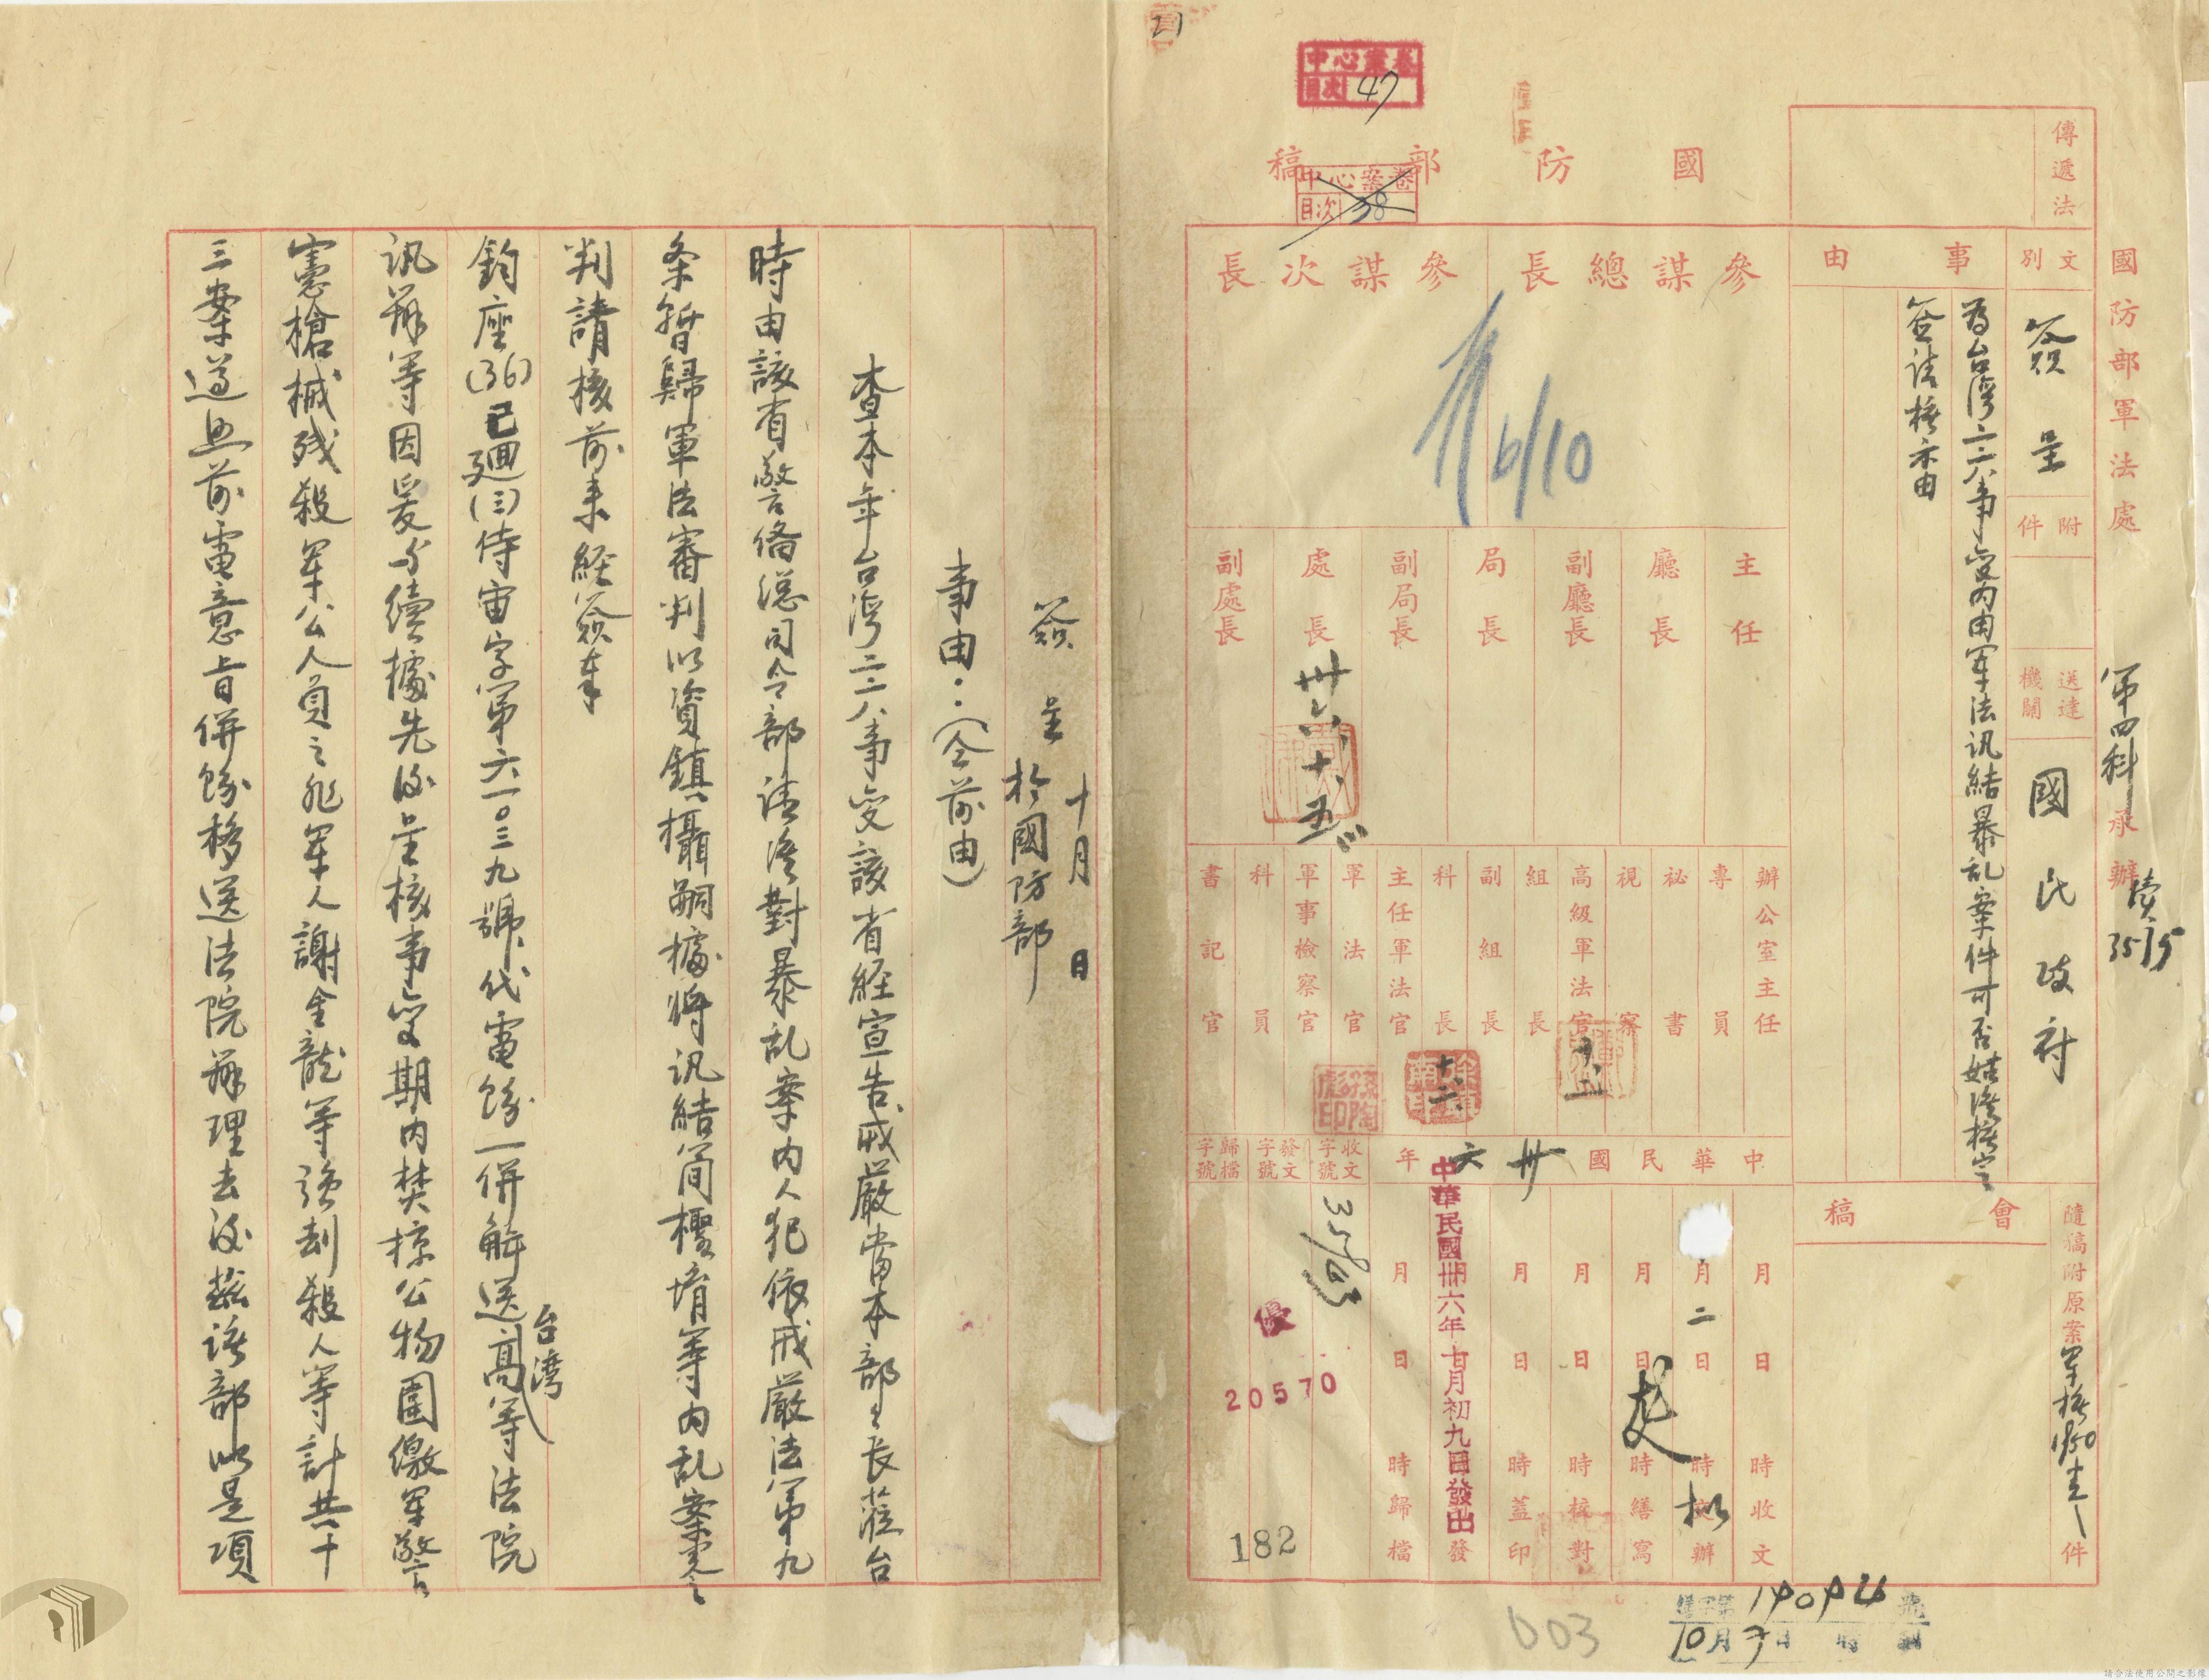 國防部稿
中心案卷
目次 47
中心案卷
目次 38
國防部軍法處
第四科承辦
傳遞法
文別
簽呈
附件
送達機關
國民政府
事由
為台灣二二八事變內由軍法訊結暴乱案件可否姑准核定之
簽請核示由
隨稿附原案 件
會稿
參謀總長
參謀次長
6/10
主任
廳長
副廳長
局長
副局長
處長
卅六、十、五
副處長
辦公室主任
專員
祕書
視察
高級軍法官
組長
副組長
科長
主任軍法官
軍法官
軍事檢察官
科員
書記官
中華民國卅六年
月 日 時收文
月二日 時擬辦
月 日 時繕寫
月 日 時核對
月 日 時蓋印
中華民國卅六年十月初九日發出
月 日 時歸檔
收文字號
發文字號
歸檔字號
20570
182
003
10月7日
簽呈 十月 日
於國防部
事由：（仝前由）
查本年台灣二二八事變該省經宣告戒嚴當本部長蒞台
時由該省警備總司令部請准對暴乱案內人犯依戒嚴法第九
条暫歸軍法審判以資鎮攝嗣據將訊結簡檉堉等內乱案党之
判請核前来經簽奉
鈞座(36)已迴(三)侍宙字第六一〇三九號代電飭一併解送台灣高等法院
訊辦等因爰分續據先後呈核事变期內焚掠公物圍繳軍警
憲槍械残殺軍公人員之非軍人謝金龍等强刦殺人等計共十
三案遵照前電意旨併飭移送法院辦理去後茲該部以是項
請合法使用公開之影像